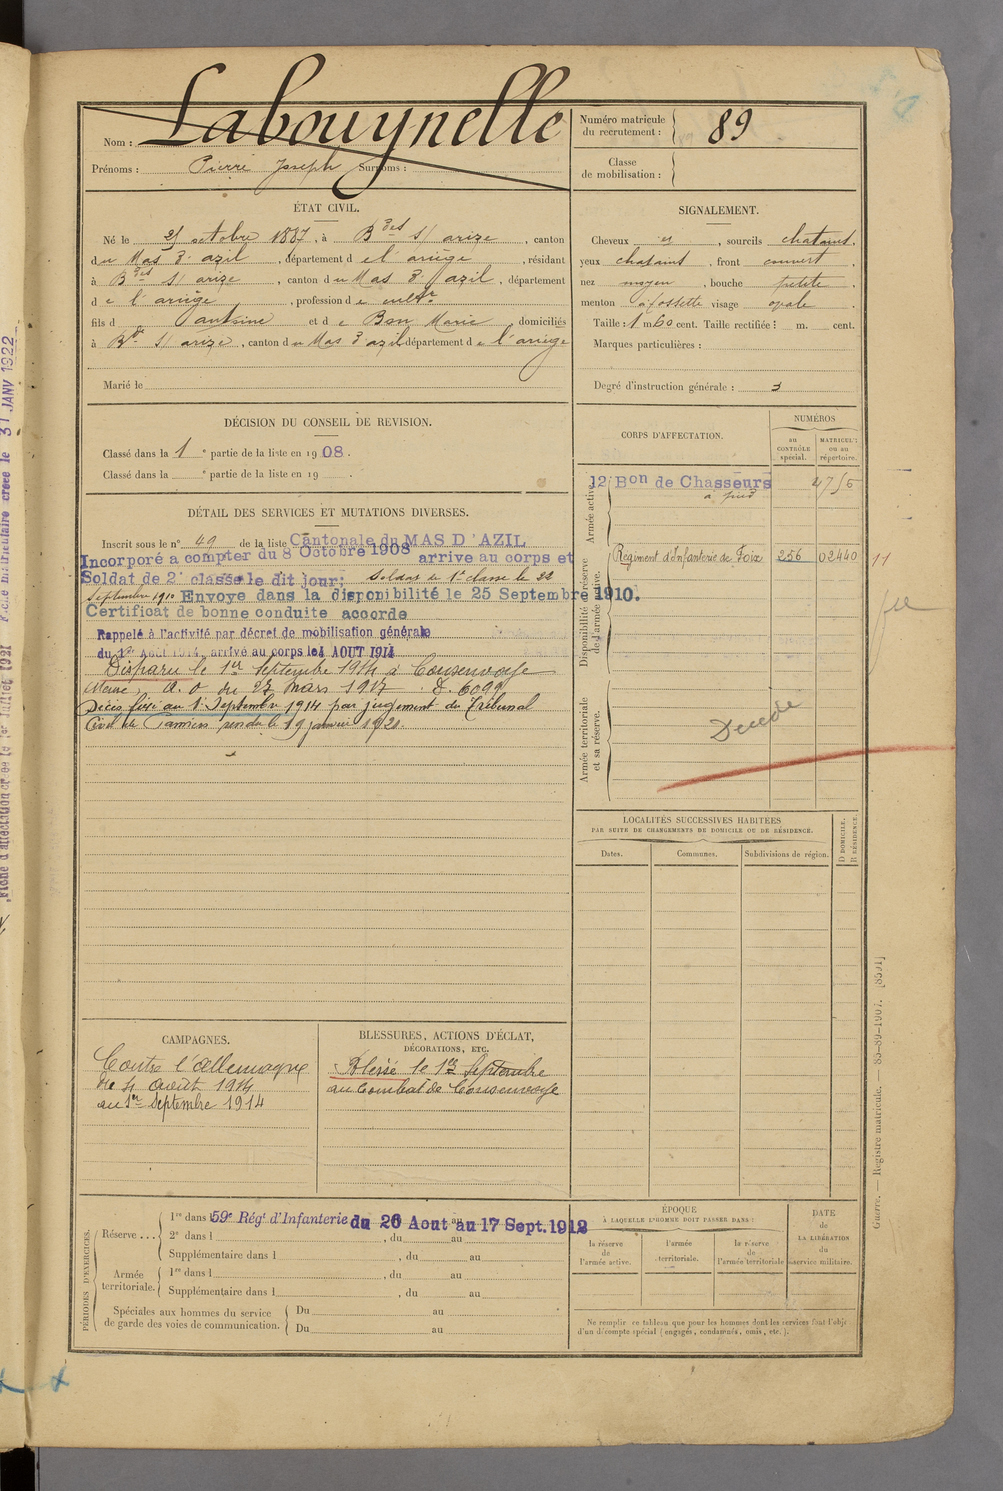 Nom : Labouynelle
Prénoms : Pierre Joseph Surnoms :
Numéro matricule du recrutement : 89
Classe de mobilisation :
ÉTAT CIVIL.
Né le octobre 1887, à Bdes s/ arize, canton
du Mas d'azil, département de l'ariège, résidant
à Bdes s/ arize, canton du Mas d'azil, département
de l'ariège, profession de cultr
fils d antoine et de Bon Marie domiciliés
à Bde s/ arize, canton du Mas d'azil département de l'ariège
Marié le
SIGNALEMENT.
Cheveux id, sourcils chatains.
yeux chatains, front couvert,
nez moyen, bouche petite,
menton à fossette visage opale.
Taille : 1 m 60 cent. Taille rectifiée : m. cent.
Marques particulières :
Degré d'instruction générale : 3
DÉCISION DU CONSEIL DE REVISION.
Classé dans la 1 e partie de la liste en 1908.
Classé dans la e partie de la liste en 19 .
DÉTAIL DES SERVICES ET MUTATIONS DIVERSES.
Inscrit sous le n° 49 de la liste Cantonale du MAS D'AZIL
Incorporé a compter du 8 Octobre 1908 arrive au corps et
Soldat de 2e classe le dit jour; Soldat de 1e classe le 22
Septembre 1910 Envoye dans la disponibilité le 25 Septembre 1910.
Certificat de bonne conduite accorde
Rappelé à l'activité par décret de mobilisation générale
du 1er Aout 1914, arrivé au corps le 4 AOUT 1914
Disparu le 1er Septembre 1914 à Consenvoye
Meuse, A. O du 27 Mars 1917 D. 6099
Décès fixé au 1 Septembre 1914 par jugement du Tribunal
Civil de Pamiers rendu le 19 janvier 1920.
CORPS D'AFFECTATION.
NUMÉROS
au CONTRÔLE spécial.
MATRICULE ou au répertoire.
Armée active.
12 Bon de Chasseurs 4756
à pied
Disponibilité et réserve de l'armée active.
Régiment d'Infanterie de Foix 256 02440 11
Armée territoriale et sa réserve.
Décédé
LOCALITÉS SUCCESSIVES HABITÉES
PAR SUITE DE CHANGEMENTS DE DOMICILE OU DE RÉSIDENCE.
Dates. Communes. Subdivisions de région. D DOMICILE. R RÉSIDENCE.
CAMPAGNES.
Contre l'allemagne
du 4 Aout 1914
au 1er Septembre 1914
BLESSURES, ACTIONS D'ÉCLAT,
DÉCORATIONS, ETC.
Blessé le 1er Septembre
au Combat de Consenvoye
PÉRIODES D'EXERCICES.
Réserve ... 1re dans l 59e Régt d'Infanterie du 26 Aout au 17 Sept. 1912
2e dans l , du au
Supplémentaire dans l , du au
Armée territoriale. 1re dans l , du au
Supplémentaire dans l , du au
Spéciales aux hommes du service de garde des voies de communication. Du au
Du au
ÉPOQUE
À LAQUELLE L'HOMME DOIT PASSER DANS :
la réserve de l'armée active.
l'armée territoriale.
la réserve de l'armée territoriale
DATE de LA LIBÉRATION du service militaire.
Ne remplir ce tableau que pour les hommes dont les services font l'objet
d'un décompte spécial (engagés, condamnés, omis, etc.).
Guerre. — Registre matricule. — 83-89-1907. [8591]